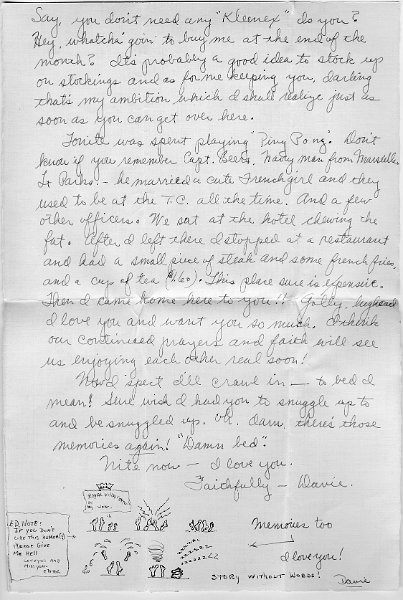 Say, you don't need any "Kleenex" do you?
Hey, whatcha' goin' to buy me at the end of the
month? It's probably a good idea to stock up
on stockings and as for me keeping you, darling
that's my ambition which I shall realize just as
soon as you can get over here.
Tonite was spent playing "Ping Pong". Don't
know if you remember Capt. Beers, Navy man from Marseille.
Lt Parks - he married a cute French girl and they
used to be at the T.C. all the time. And a few
other officers. We sat at the hotel chewing the
fat. After I left there I stopped at a restaurant
and had a small piece of steak and some french fries,
and a cup of tea This place sure is expensive.
Then I came home here to you!! Golly,
I love you and want you so much. I think
our continued prayers and faith will see
us enjoying each other real soon!
Now I 'spect I'll crawl in — to bed I
mean! Sure wish I had you to snuggle up to
and be snuggled up. Oh, darn, there's those
memories again! "Damn bed".
Nite now — I love you.
Faithfully — Davie.
ED. NOTE:
IF YOU DON'T
LIKE THIS
PLEASE GIVE
ME HELL
Memories too
I love you!
STORY WITHOUT WORDS!
Davie